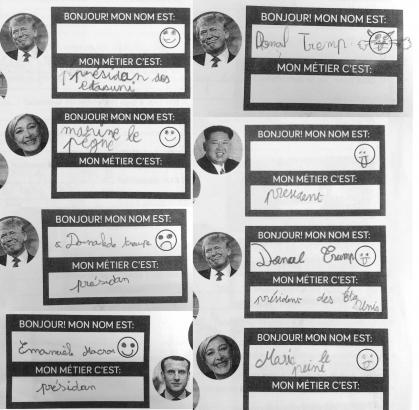 BONJOUR! MON NOM EST:
MON MÉTIER C'EST:
présidan des
etasuni
BONJOUR! MON NOM EST:
marine le
pegne
MON MÉTIER C'EST:
BONJOUR! MON NOM EST:
Donald trempe
MON MÉTIER C'EST:
présidan
BONJOUR! MON NOM EST:
Emanuel Macron
MON MÉTIER C'EST:
présidan
BONJOUR! MON NOM EST:
Donal Tremp
MON MÉTIER C'EST:
BONJOUR! MON NOM EST:
MON MÉTIER C'EST:
president
BONJOUR! MON NOM EST:
Donal Trump
MON MÉTIER C'EST:
président des Éta
Unis
BONJOUR! MON NOM EST:
Marie le
peine
MON MÉTIER C'EST: